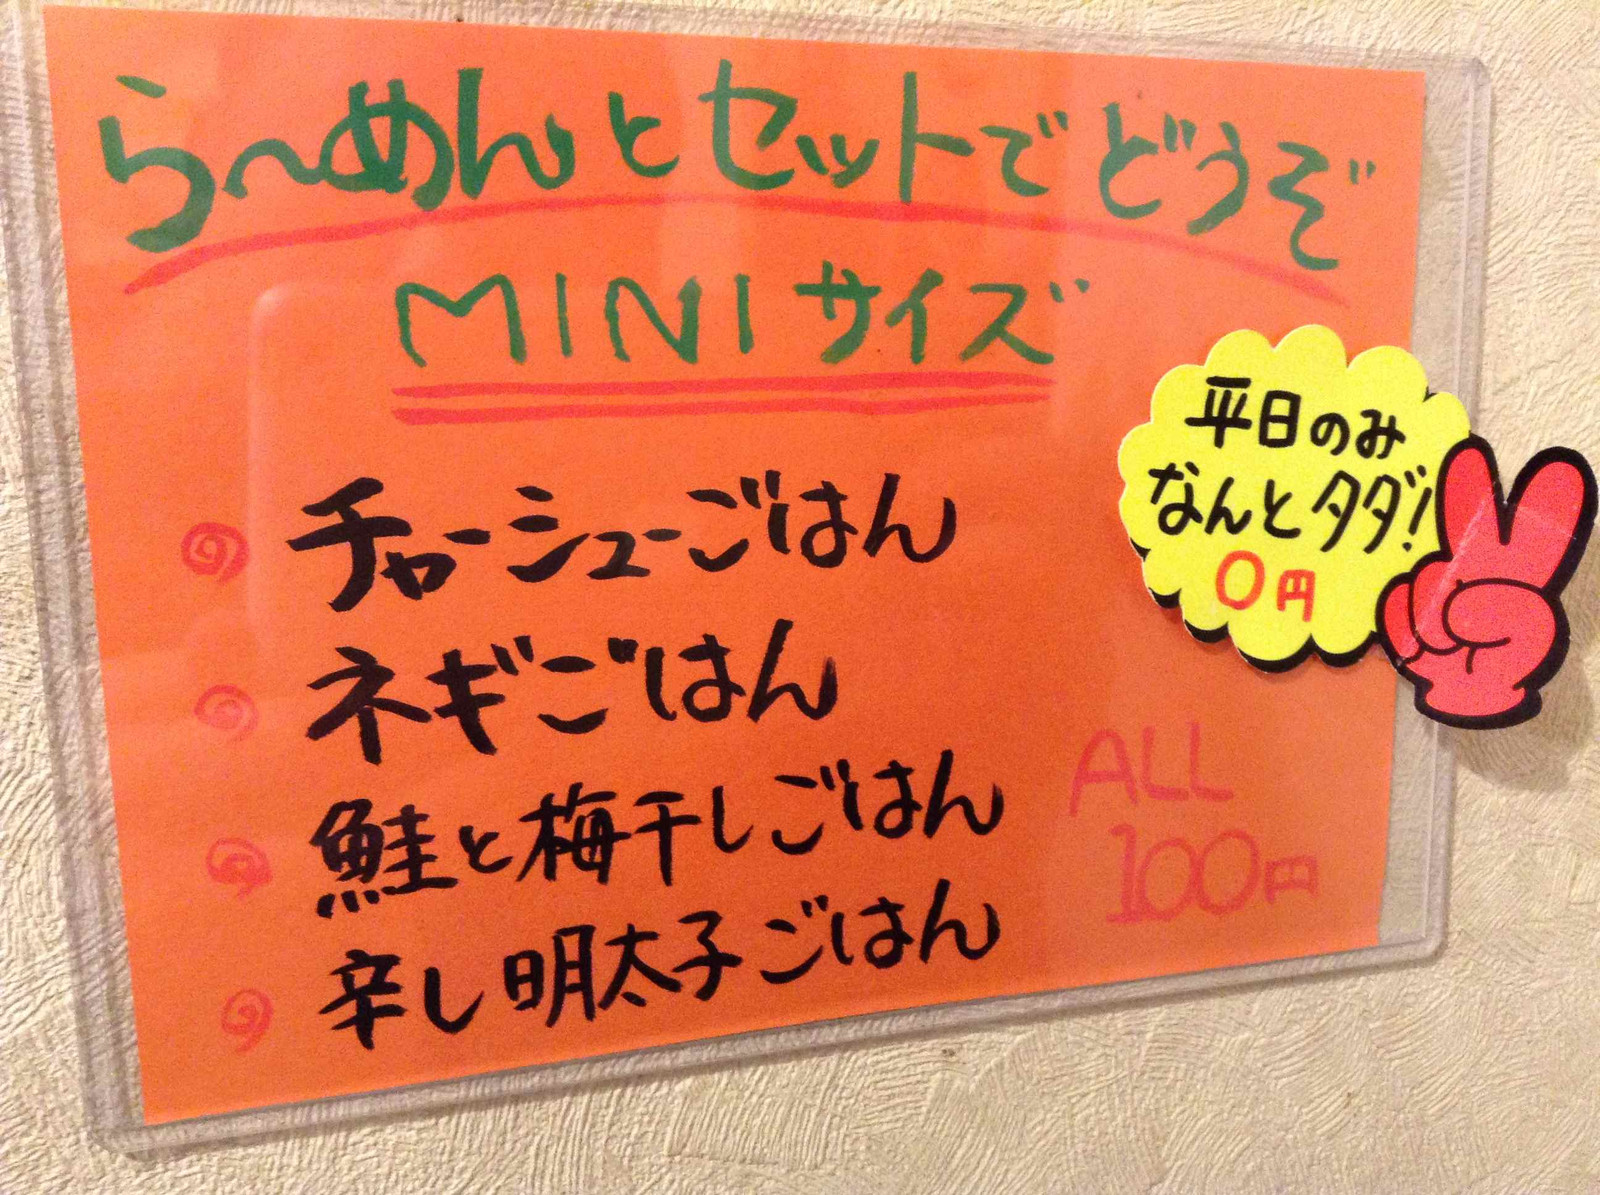 ら〜めんとセットでどうぞ
MINIサイズ
チャーシューごはん
ネギごはん
鮭と梅干しごはん
辛し明太子ごはん
平日のみ
なんとタダ!
0円
ALL
100円